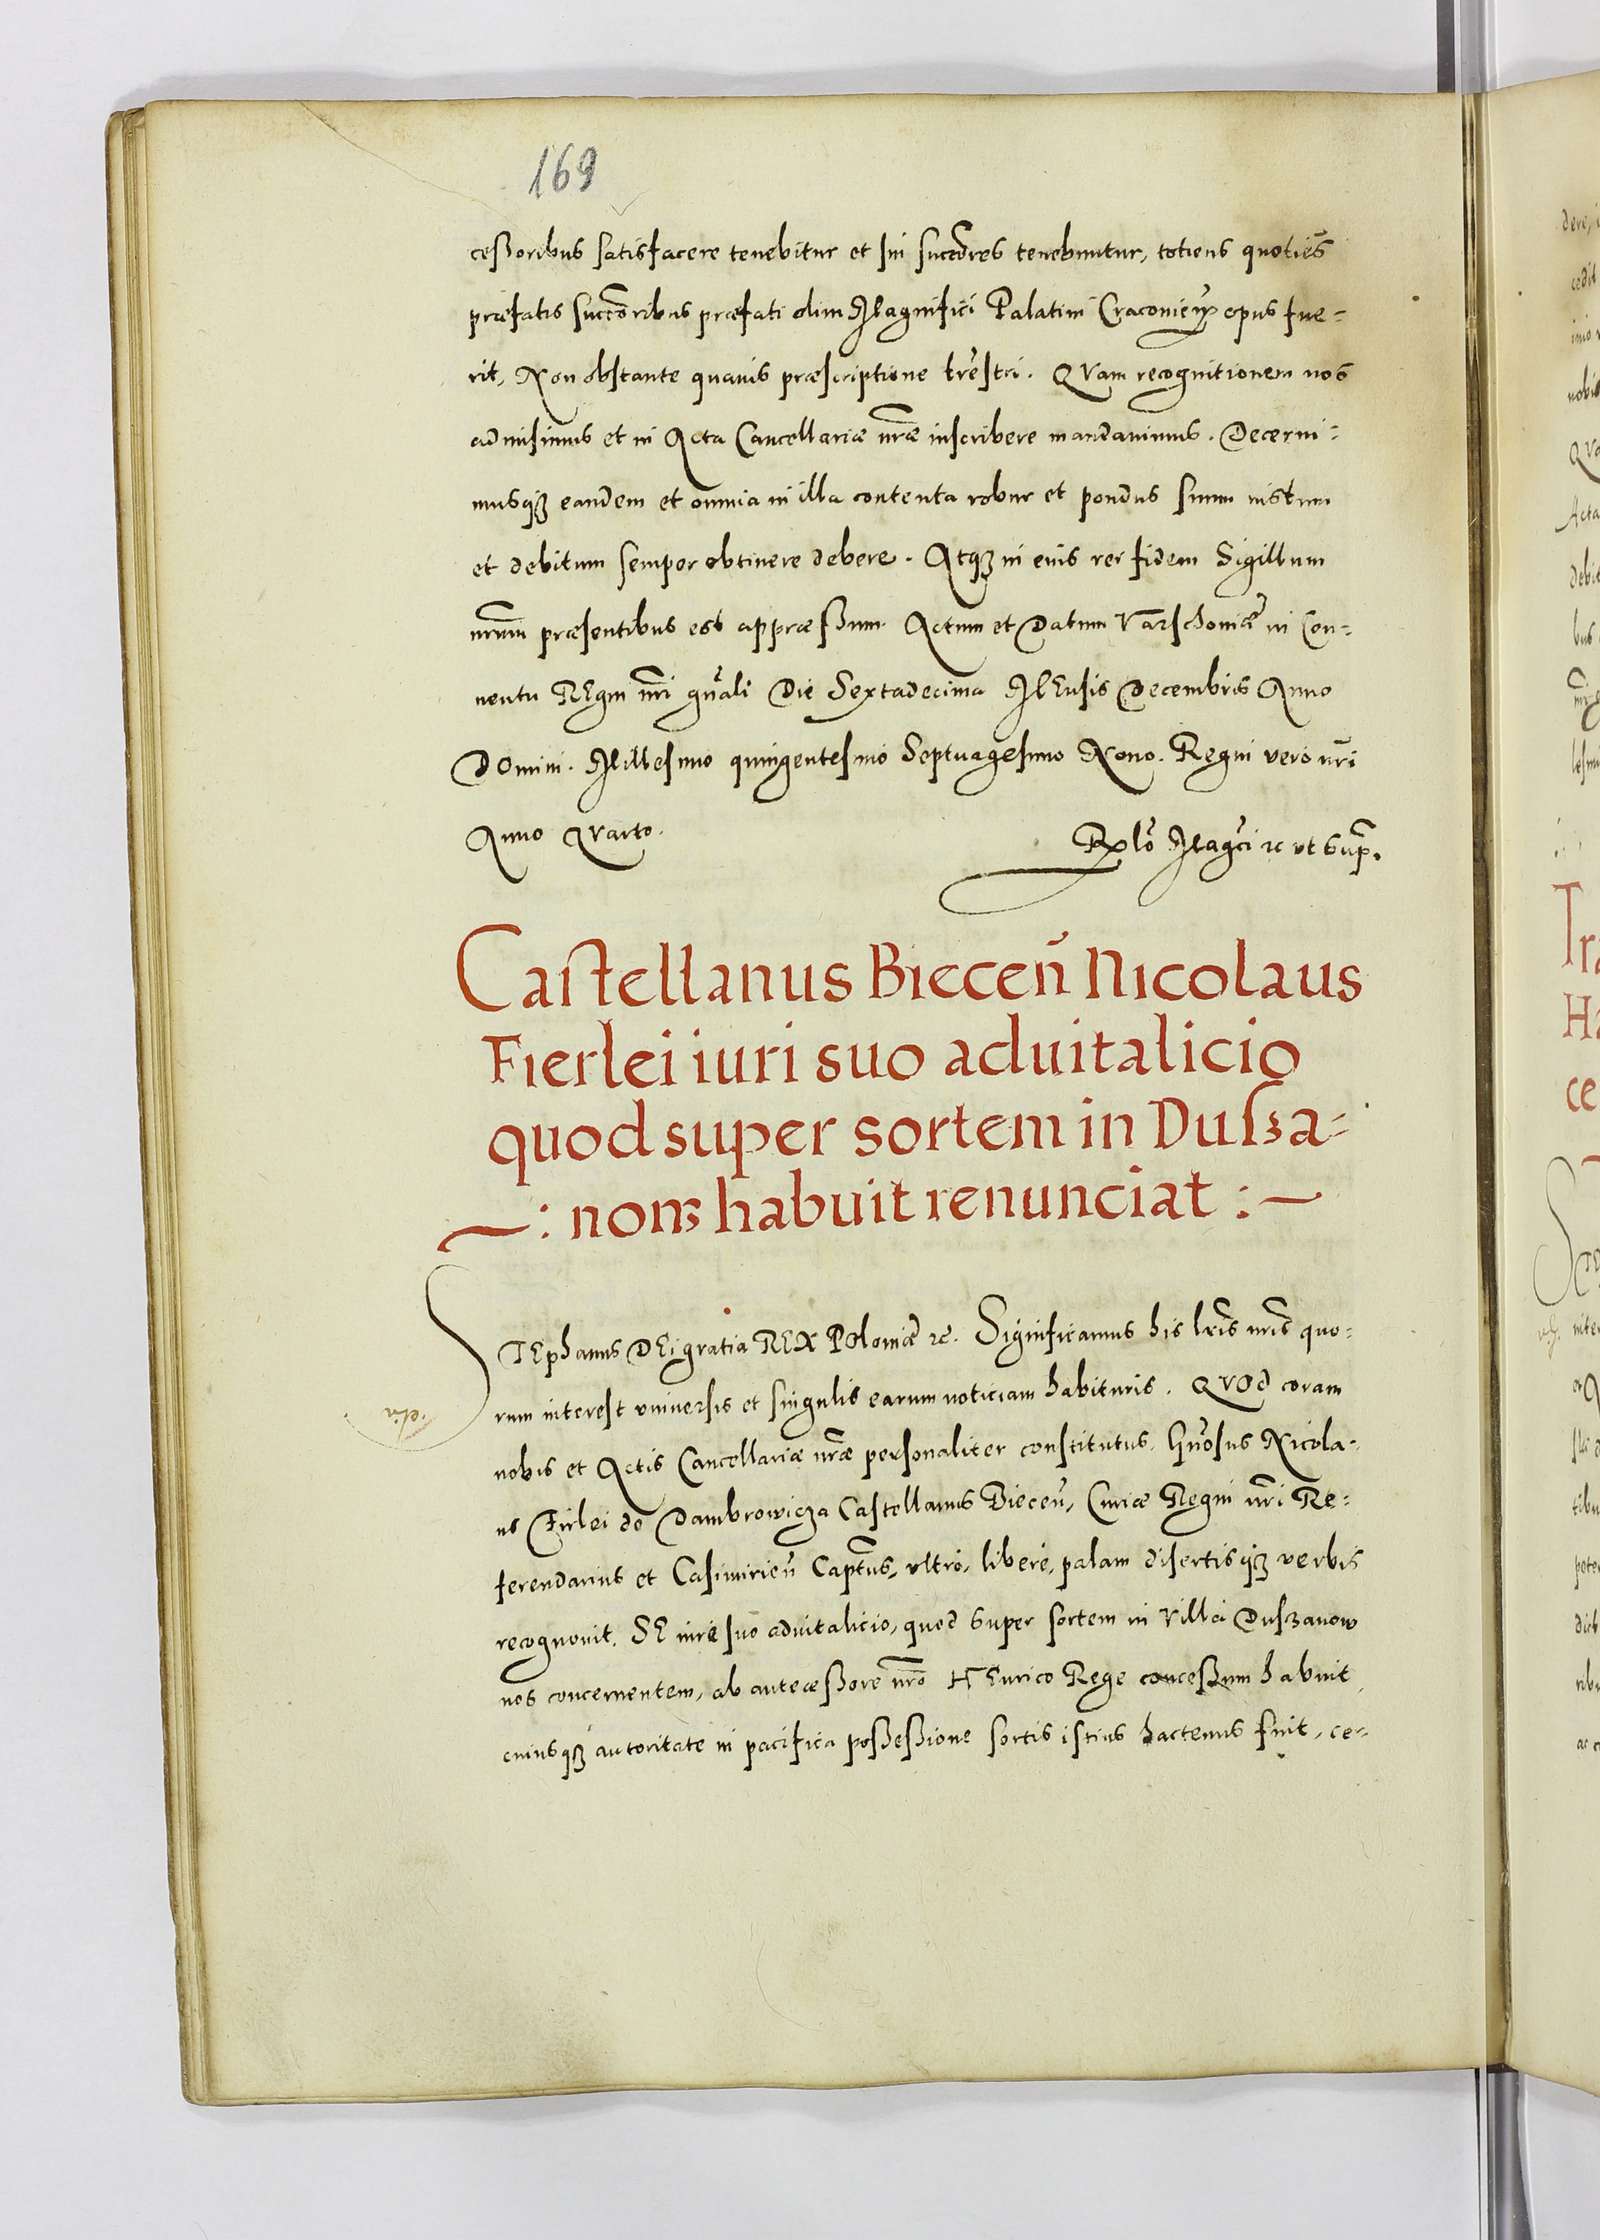 169
ceßoribus satisfacere tenebitur et sui succeßres tenebuntur, totiens quoties
præfatis succeßoribus præfati olim Magnifici Palatini Cracovien̄ opus fue-
rit, Non obstante quavis præscriptione tr̄estri. QVam recognitionem nos
admisimus et in Acta Cancellariæ nr̄æ inscribere mandavimus. Decerni-
musqꝫ eandem et omnia in illa contenta robur et pondus suum iustum
et debitum semper obtinere debere. Atqꝫ in eius rei fidem Sigillum
nr̄um præsentibus est appræßum. Actum et Datum Varschoviæ in Con-
ventu REgni nr̄i gn̄ali Die Sextadecima MEnsis Decembris Anno
DOmini. Millesimo quingentesimo Septuagesimo Nono. Regni vero nr̄i
Anno Qvarto.
Rel̄o Magc̄i ꝛc ut Supr̄.
Castellanus Biecen̄ Nicolaus
Fierlei iuri suo aduitalicio
quod super sortem in Dußa-
—: now habuit renunciat :—
STEphanus DEi gratia REX POloniæ ꝛc. Significamus his lr̄is nr̄is quo-
rum interest universis et singulis earum noticiam habituris. QVOd coram
nobis et Actis Cancellariæ nr̄æ personaliter constitutus, Gn̄osus Nicola-
us Firlei de Dambrowicza Castellanus Biecen̄, Curiæ Regni nr̄i Re-
ferendarius et Casimirien̄ Capt̄us, ultro, libere, palam disertisqꝫ verbis
recognovit, SE iuri suo aduitalicio, quod Super sortem in Villa Duszanow
nos concernentem, ab anteceßore nr̄o HEnrico Rege conceßum habuit,
cuiusqꝫ autoritate in pacifica poßeßione sortis istius hactenus fuit, ce-